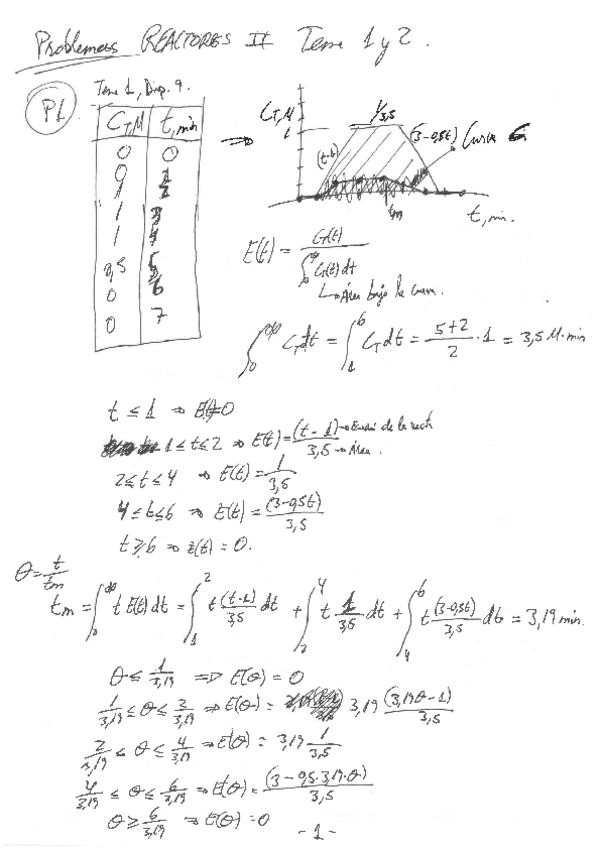 Problemas REACTORES II Tema 1 y 2.
P1 Tema 1, Diap. 9.
C_T, M t, min
0 0
0 1
1 2
1 3
1 4
0,5 5
0 6
0 7
C_T, M
1
1/3,5
(t-1)
(3-0,5t)
Curva
tm
t, min.
E(t) = C_T(t) / ∫₀^∞ C_T(t) dt
Área bajo la curva.
∫₀^∞ C_T dt = ∫₁^6 C_T dt = (5+2)/2 · 1 = 3,5 M·min
t ≤ 1 ⇒ E(t)=0
1 ≤ t ≤ 2 ⇒ E(t) = (t-1) / 3,5 → Ecuación de la recta → Área.
2 ≤ t ≤ 4 ⇒ E(t) = 1/3,5
4 ≤ t ≤ 6 ⇒ E(t) = (3-0,5t)/3,5
t ≥ 6 ⇒ E(t) = 0.
θ = t/tm
tm = ∫₀^∞ t E(t) dt = ∫₁^2 t (t-1)/3,5 dt + ∫₂^4 t 1/3,5 dt + ∫₄^6 t (3-0,5t)/3,5 dt = 3,19 min.
θ ≤ 1/3,19 ⇒ E(θ) = 0
1/3,19 ≤ θ ≤ 2/3,19 ⇒ E(θ) = 3,19 (3,19θ-1)/3,5
2/3,19 ≤ θ ≤ 4/3,19 ⇒ E(θ) = 3,19 1/3,5
4/3,19 ≤ θ ≤ 6/3,19 ⇒ E(θ) = (3-0,5·3,19·θ)/3,5
θ ≥ 6/3,19 ⇒ E(θ) = 0
-1-